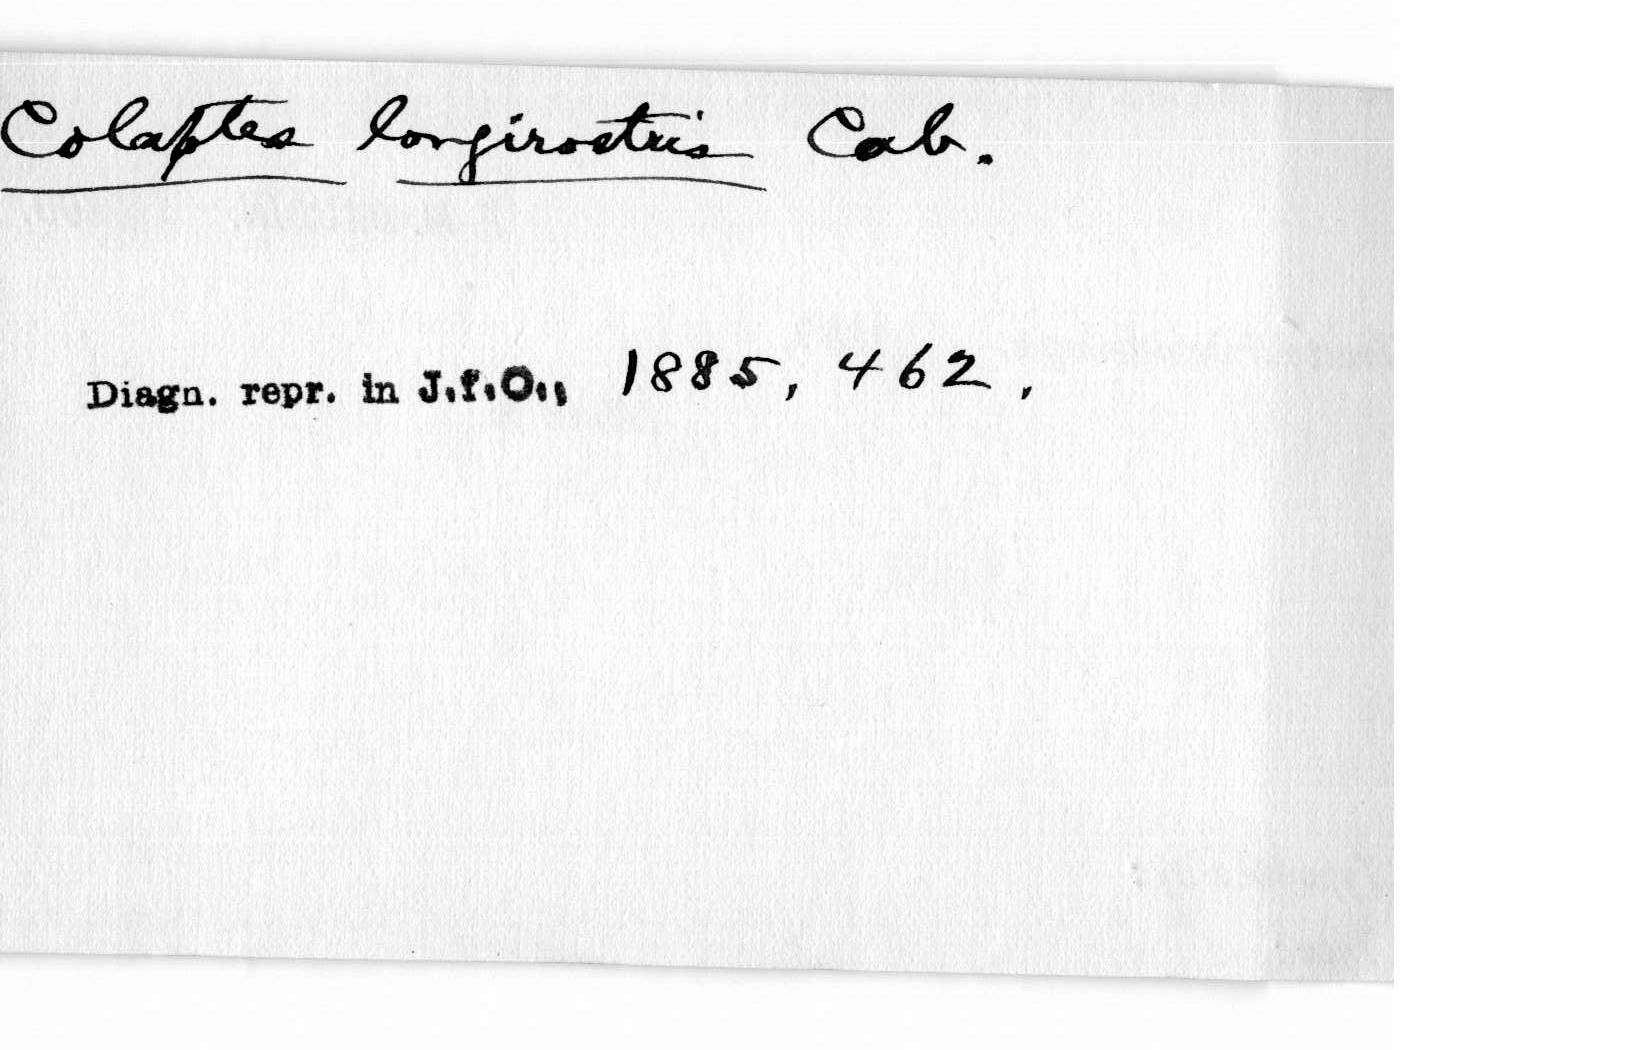 Colaptes longirostris Cab.
Diagn. repr. in J.f.O., 1885, 462,